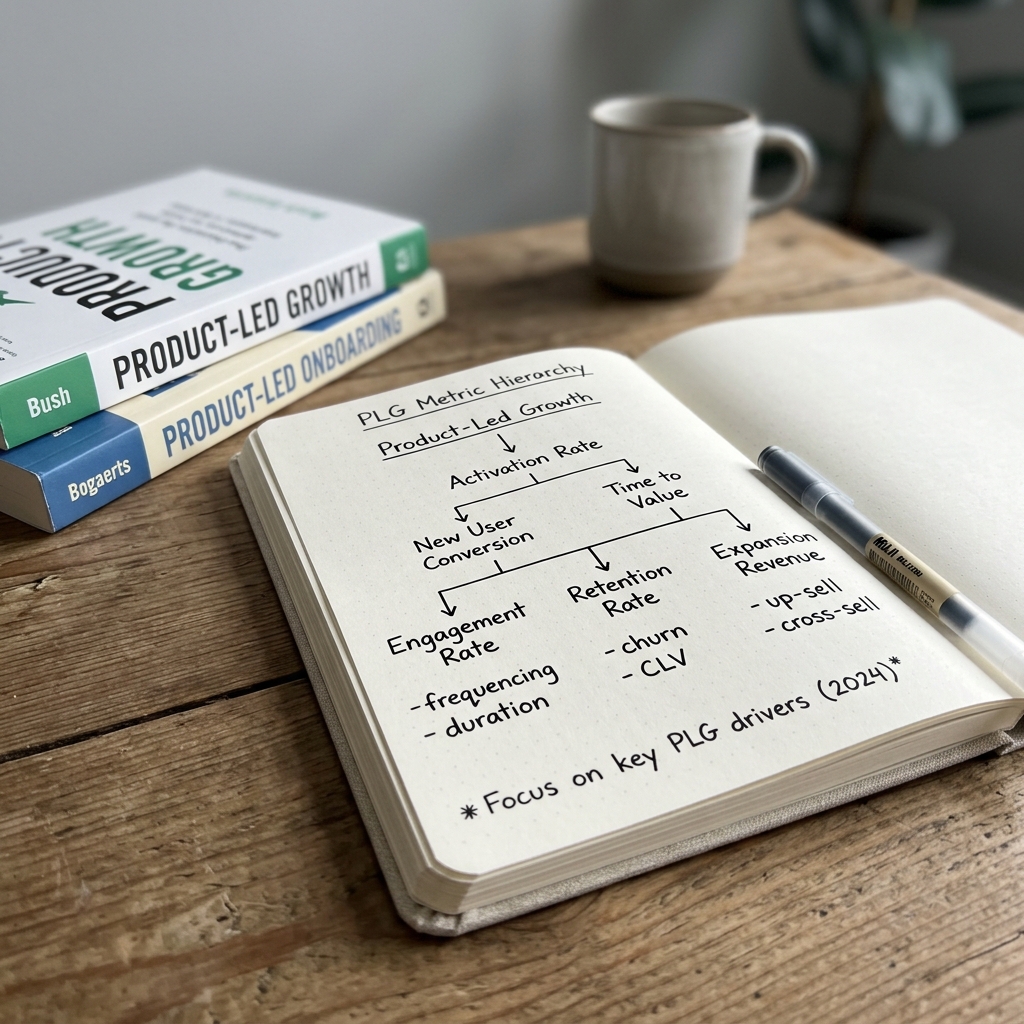 PRODUCT-LED
GROWTH
PRODUCT-LED GROWTH
Bush
PRODUCT-LED ONBOARDING
Bogaerts
PLG Metric Hierarchy
Product-Led Growth
Activation Rate
Time to
Value
New User
Conversion
Expansion
Revenue
- up-sell
- cross-sell
Retention
Rate
- churn
- CLV
Engagement
Rate
- frequencing
- duration
* Focus on key PLG drivers (2024)*
MUJI